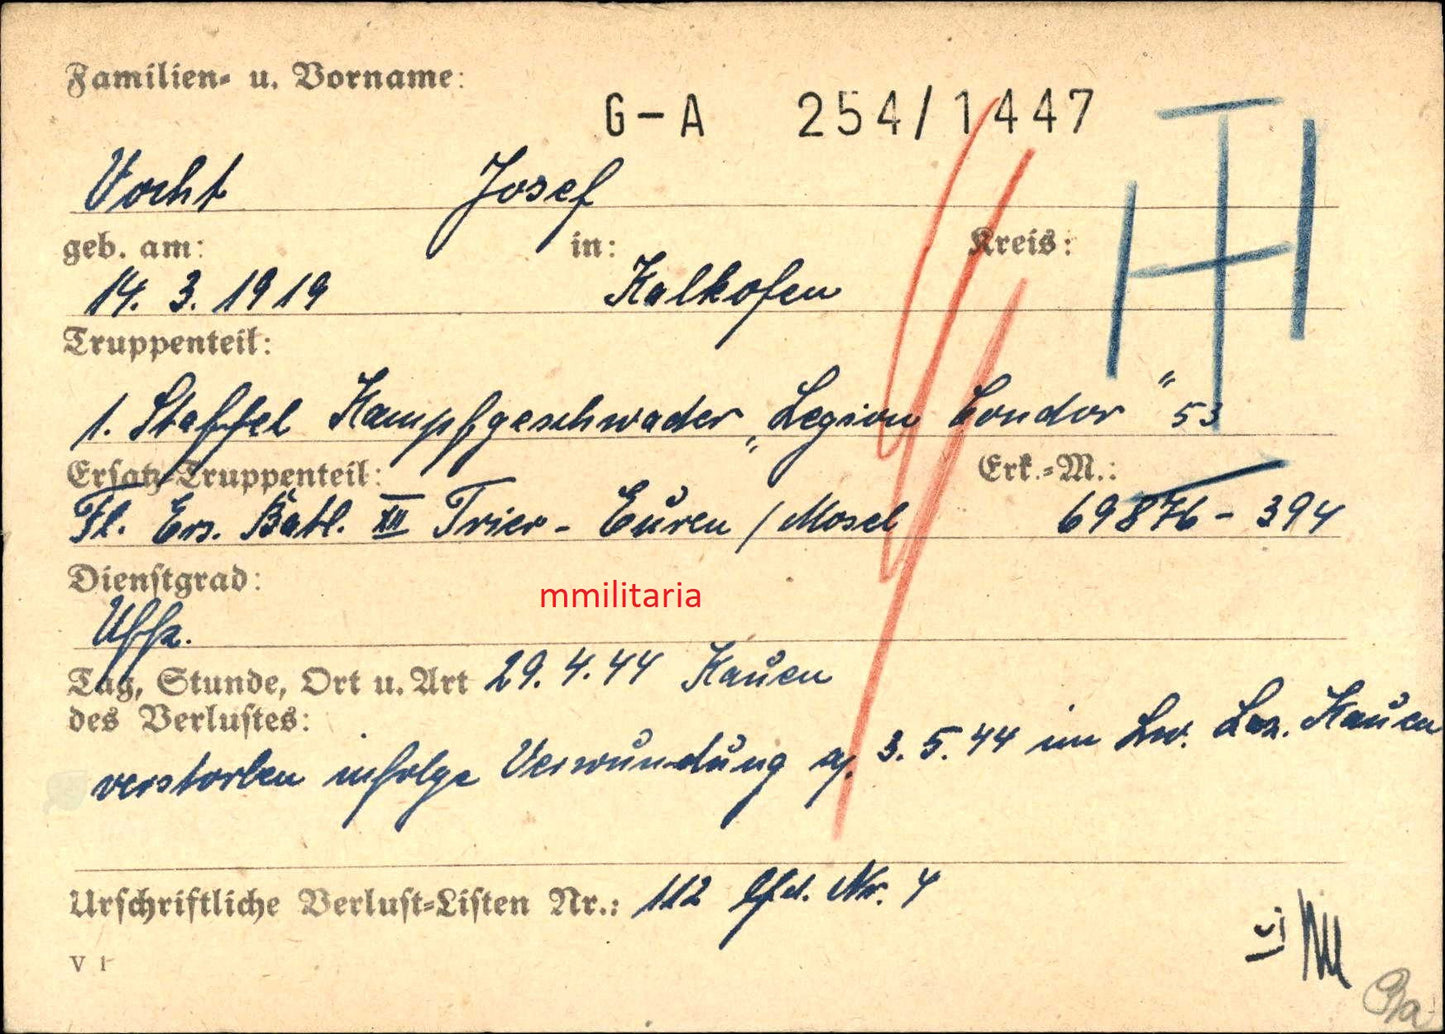 Familien- u. Vorname:
G-A 254/1447
Vocht Josef
geb. am: in: Kreis:
14. 3. 1919 Kalkofen
Truppenteil:
1. Staffel Kampfgeschwader „Legion Condor" 53
Ersatz-Truppenteil: Erk.-M.:
Fl. Ers. Batl. XII Trier - Euren / Mosel 69876 - 394
Dienstgrad:
Uffz.
mmilitaria
Tag, Stunde, Ort u. Art 29. 4. 44 Kauen
des Verlustes:
verstorben infolge Verwundung a. 3. 5. 44 im Lw. Laz. Kauen
Urschriftliche Verlust-Listen Nr.: 112 lfd. Nr. 4
V 1